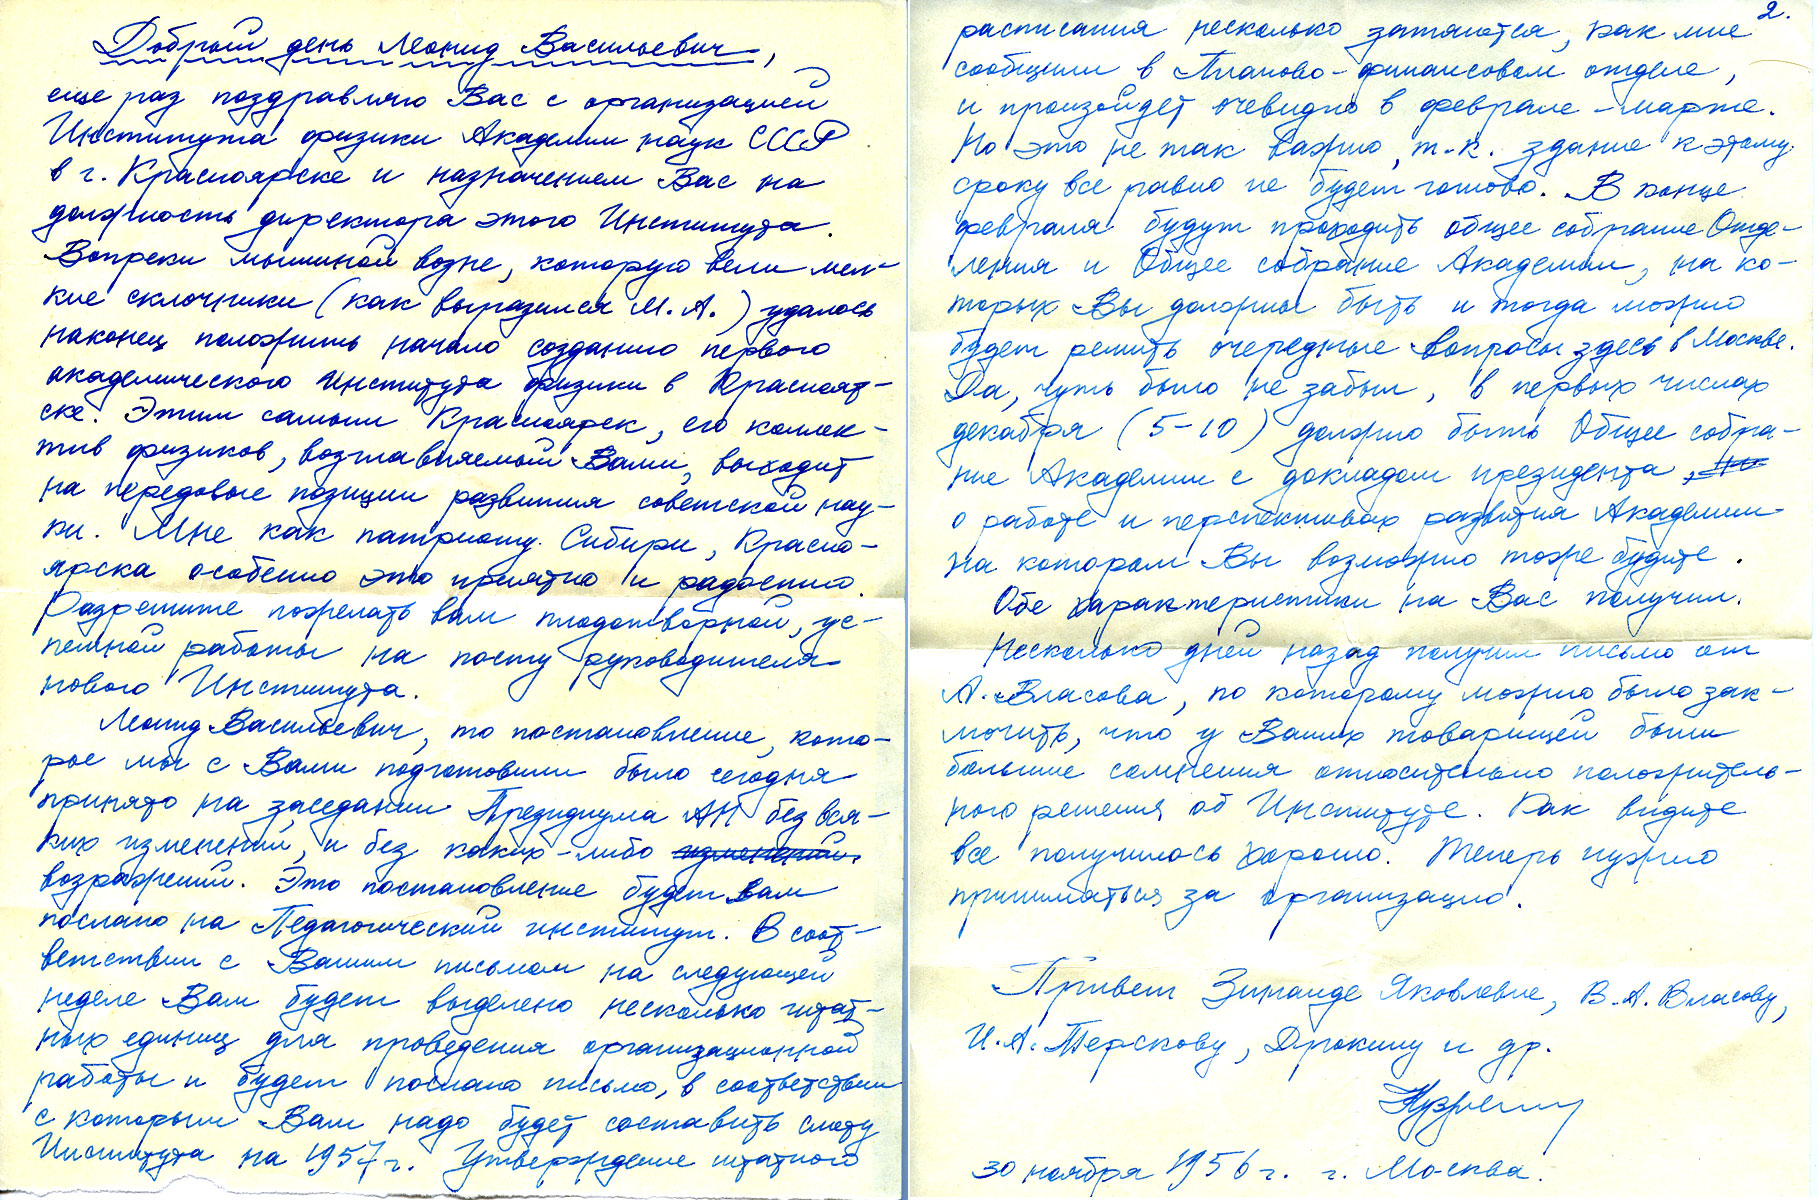 Добрый день Леонид Васильевич,
еще раз поздравляю Вас с организацией
Института физики Академии наук СССР
в г. Красноярске и назначением Вас на
должность директора этого Института.
Вопреки мышиной возне, которую вели мел-
кие склочники (как выразился М. А.) удалось
наконец положить начало созданию первого
академического института физики в Краснояр-
ске. Этим самым Красноярск, его коллек-
тив физиков, возглавляемый Вами, выходит
на передовые позиции развития советской нау-
ки. Мне как патриоту Сибири, Красно-
ярска особенно это приятно и радостно.
Разрешите пожелать вам плодотворной, ус-
пешной работы на посту руководителя
нового Института.
Леонид Васильевич, то постановление, кото-
рое мы с Вами подготовили было сегодня
принято на заседании Президиума АН без вся-
ких изменений, и без каких-либо изменений
возражений. Это постановление будет вам
послано на Педагогический институт. В соот-
ветствии с Вашим письмом на следующей
неделе Вам будет выделено несколько штат-
ных единиц для проведения организационной
работы и будет послано письмо, в соответствии
с которым Вам надо будет составить смету
Института на 1957 г. Утверждение штатного
2.
расписания несколько затянется, как мне
сообщили в Планово-финансовом отделе,
и произойдет очевидно в феврале - марте.
Но это не так важно, т.к. здание к этому
сроку все равно не будет готово. В конце
февраля будут проходить общее собрание Отде-
ления и Общее собрание Академии, на ко-
торых Вы должны быть и тогда можно
будет решить очередные вопросы здесь в Москве.
Да, чуть было не забыл, в первых числах
декабря (5-10) должно быть Общее собра-
ние Академии с докладом президента
о работе и перспективах развития Академии
на котором Вы возможно тоже будите.
Обе характеристики на Вас получил.
Несколько дней назад получил письмо от
А. Власова, по которому можно было зак-
лючить, что у Ваших товарищей были
большие сомнения относительно положитель-
ного решения об Институте. Как видите
все получилось хорошо. Теперь нужно
приниматься за организацию.
Привет Зинаиде Яковлевне, В.А. Власову,
И.А. Терскову, Дрокину и др.
30 ноября 1956 г. г. Москва.